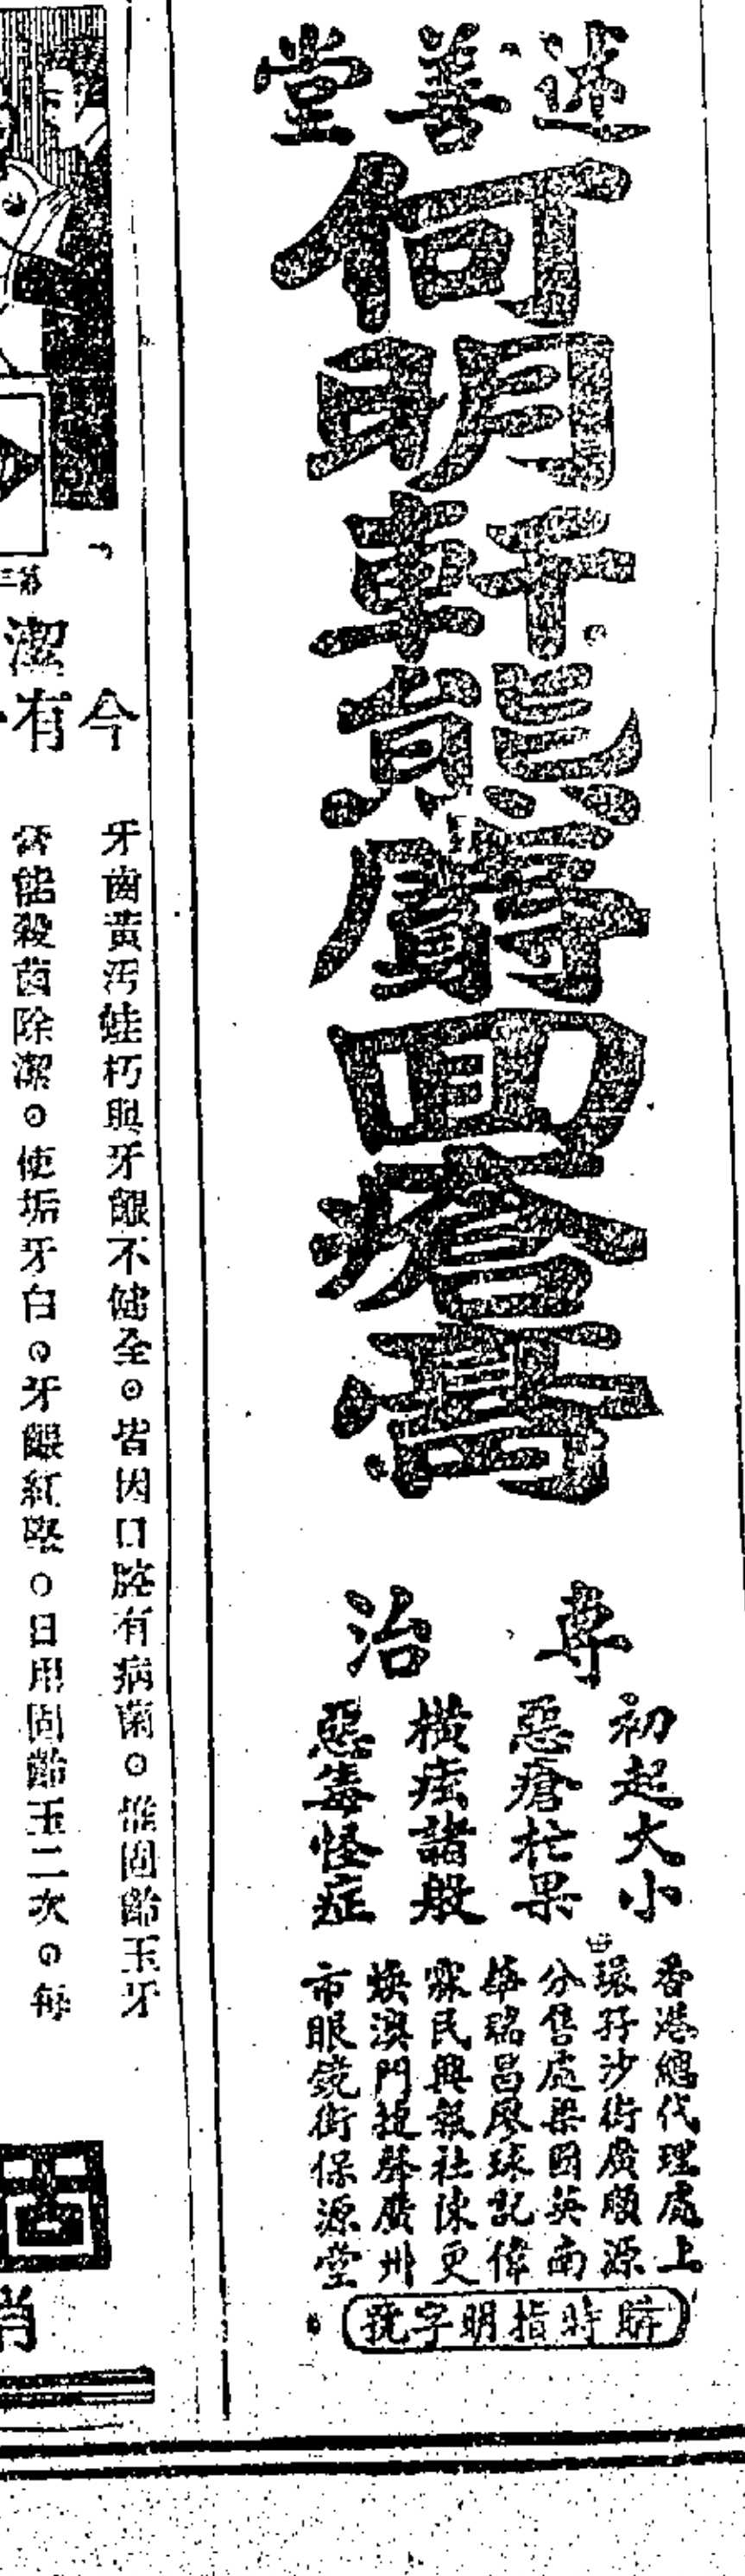 述善堂
何明軒熊麝四瘡膏
專治
初起大小
惡瘡杧果
橫痃諸般
惡毒怪症
香港總代理處上
環孖沙街廣順源
分售處梁國英南
華瑞昌廖珠記偉
霖民興報社陳更
煥澳門捷聲廣州
市眼鏡街保源堂
購時指明字號
今
有
潔
牙齒黃汚蛀朽與牙齦不健全。皆因口腔有病菌。惟固齡玉牙
膏能殺菌除潔。使垢牙白。牙齦紅堅。日用固齡玉二次。每